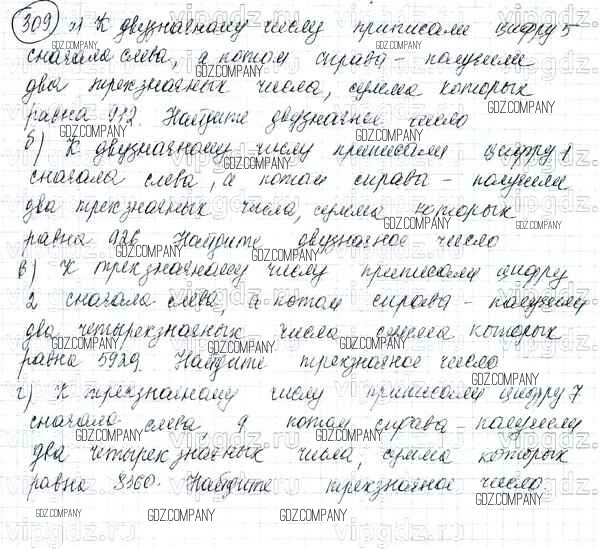 309 а) К двузначному числу приписали цифру 5
сначала слева, а потом справа - получили
два трехзначных числа, сумма которых
равна 912. Найдите двузначное число
б) К двузначному числу приписали цифру 1
сначала слева, а потом справа - получили
два трехзначных числа, сумма которых
равна 926. Найдите двузначное число
в) К трехзначному числу приписали цифру
2 сначала слева, а потом справа - получили
два четырехзначных числа сумма которых
равна 5929. Найдите трехзначное число
г) К трехзначному числу приписали цифру 7
сначала слева, а потом справа - получили
два четырехзначных числа, сумма которых
равна 8360. Найдите трехзначное число.
GDZ.COMPANY
vipgdz.ru